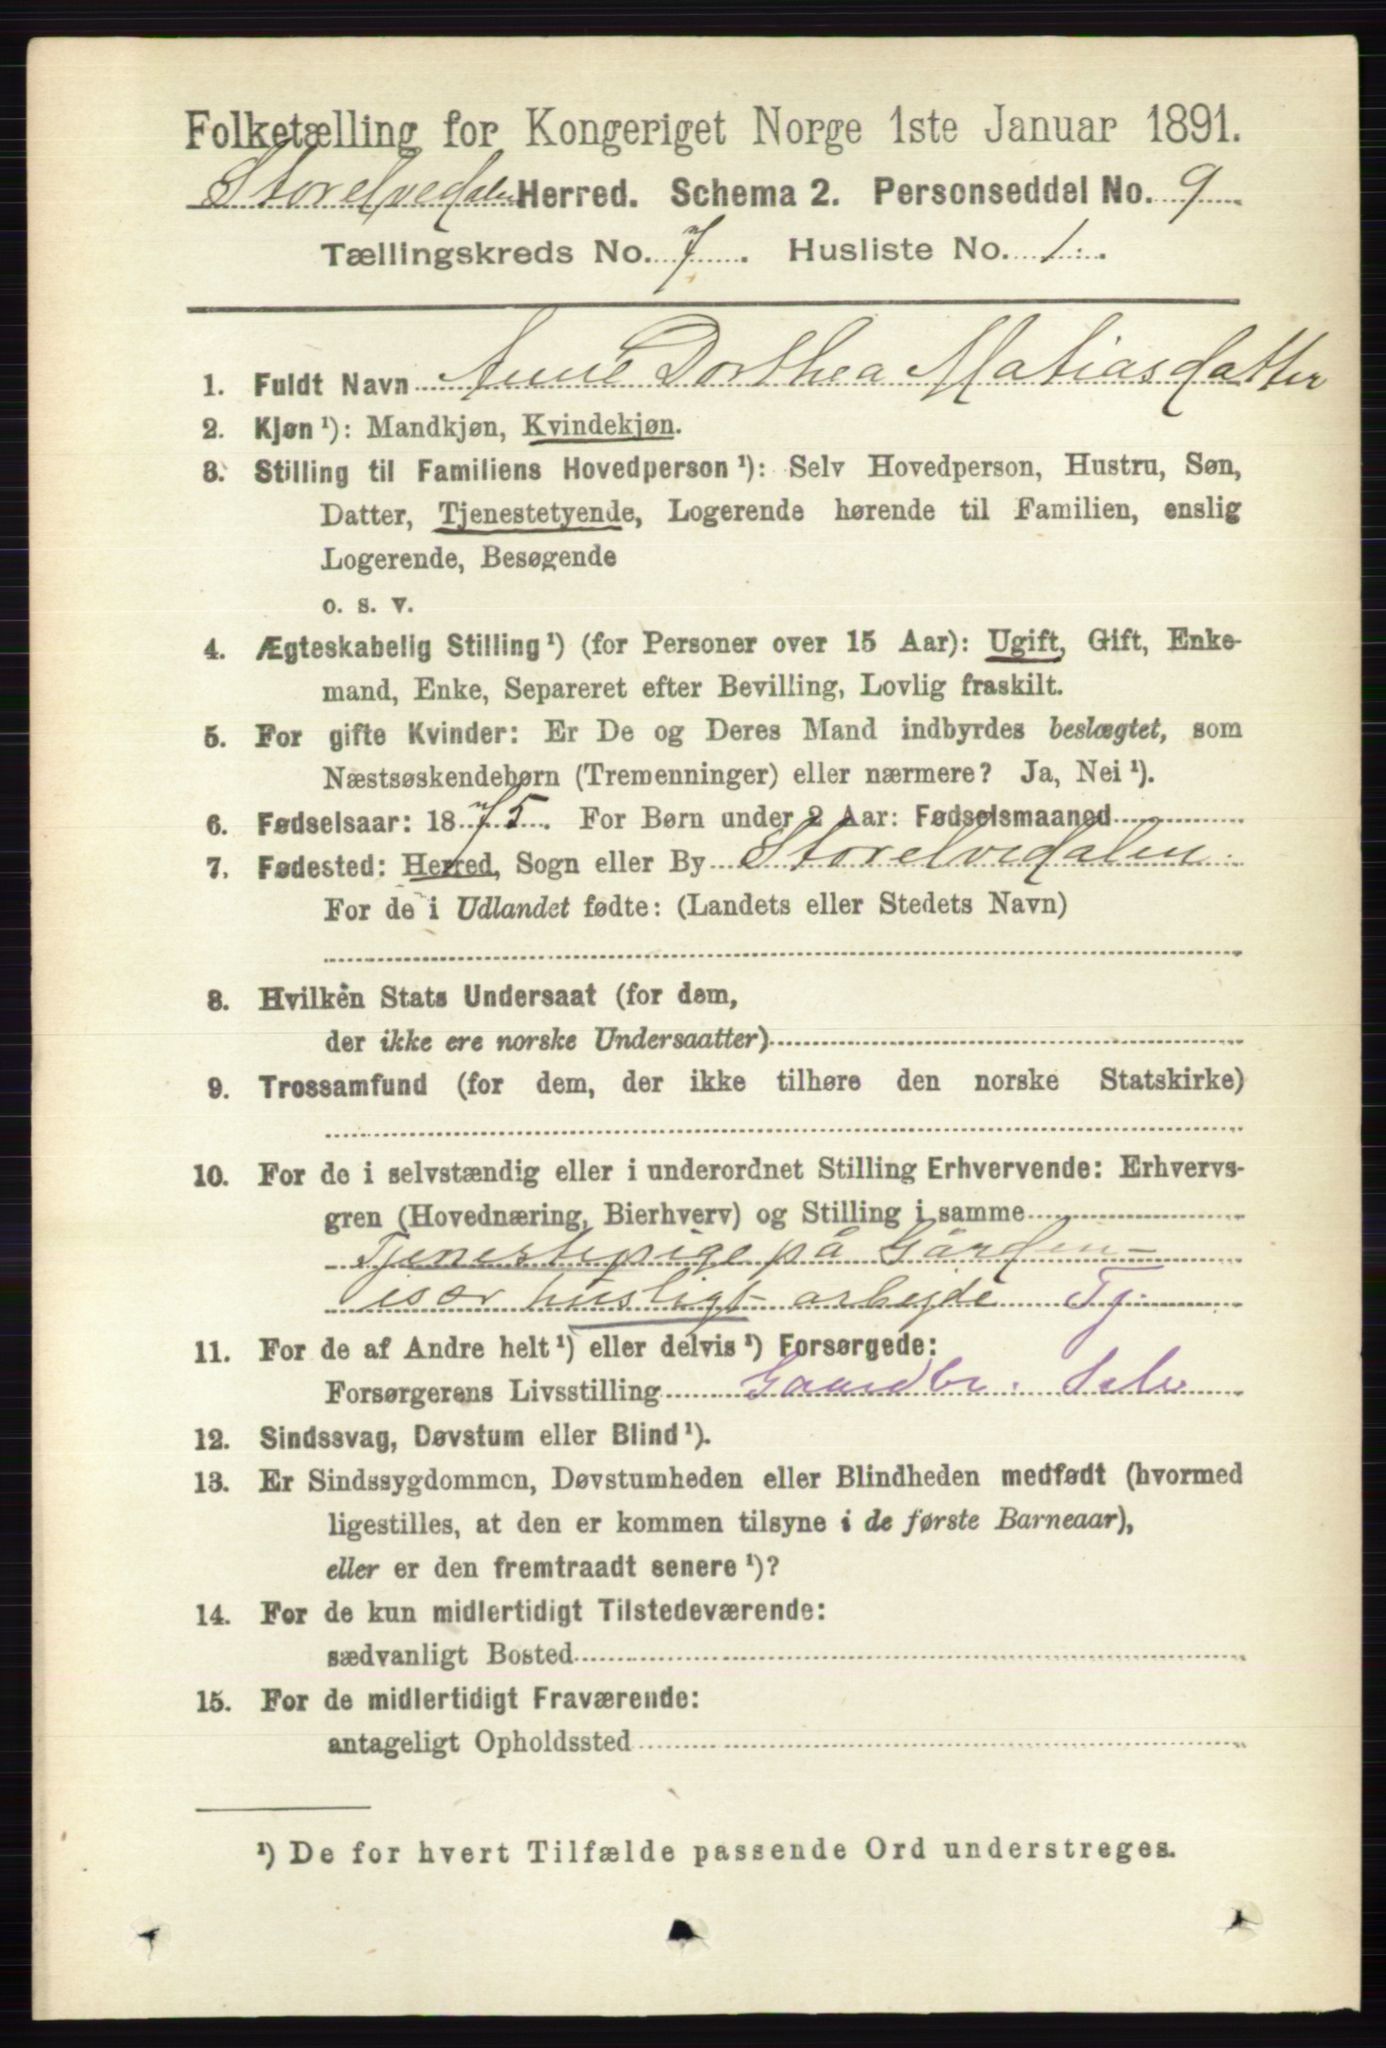 Folketælling for Kongeriget Norge 1ste Januar 1891.
Storelvedalen Herred. Schema 2. Personseddel No. 9
Tællingskreds No. 7. Husliste No. 1.
1. Fuldt Navn Anne Dorthea Matiasdatter
2. Kjøn ¹): Mandkjøn, Kvindekjøn.
3. Stilling til Familiens Hovedperson ¹): Selv Hovedperson, Hustru, Søn,
Datter, Tjenestetyende, Logerende hørende til Familien, enslig
Logerende, Besøgende
o. s. v.
4. Ægteskabelig Stilling ¹) (for Personer over 15 Aar): Ugift, Gift, Enke-
mand, Enke, Separeret efter Bevilling, Lovlig fraskilt.
5. For gifte Kvinder: Er De og Deres Mand indbyrdes beslægtet, som
Næstsøskendebørn (Tremenninger) eller nærmere? Ja, Nei ¹).
6. Fødselsaar: 1875. For Børn under 2 Aar: Fødselsmaaned
7. Fødested: Herred, Sogn eller By Storelvedalen.
For de i Udlandet fødte: (Landets eller Stedets Navn)
8. Hvilken Stats Undersaat (for dem,
der ikke ere norske Undersaatter)
9. Trossamfund (for dem, der ikke tilhøre den norske Statskirke)
10. For de i selvstændig eller i underordnet Stilling Erhvervende: Erhvervs-
gren (Hovednæring, Bierhverv) og Stilling i samme
Tjenestepige på Gården -
især husligt arbejde Tj.
11. For de af Andre helt ¹) eller delvis ¹) Forsørgede:
Forsørgerens Livsstilling Gaardbr. Selv
12. Sindssvag, Døvstum eller Blind ¹).
13. Er Sindssygdommen, Døvstumheden eller Blindheden medfødt (hvormed
ligestilles, at den er kommen tilsyne i de første Barneaar),
eller er den fremtraadt senere ¹)?
14. For de kun midlertidigt Tilstedeværende:
sædvanligt Bosted
15. For de midlertidigt Fraværende:
antageligt Opholdssted
¹) De for hvert Tilfælde passende Ord understreges.